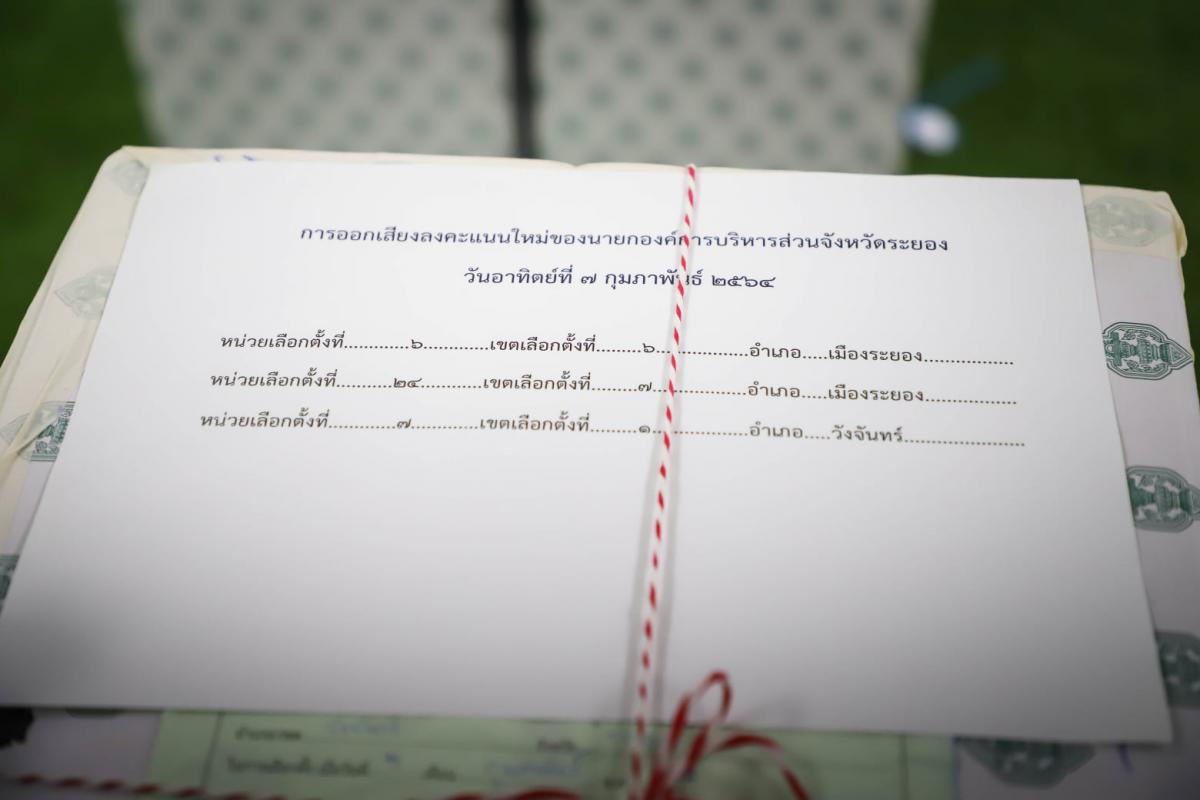 การออกเสียงลงคะแนนใหม่ของนายกองค์การบริหารส่วนจังหวัดระยอง
วันอาทิตย์ที่ ๗ กุมภาพันธ์ ๒๕๖๔
หน่วยเลือกตั้งที่.............๖............เขตเลือกตั้งที่.........๖..................อำเภอ.....เมืองระยอง..................
หน่วยเลือกตั้งที่...........๒๔............เขตเลือกตั้งที่.........๗...................อำเภอ.....เมืองระยอง..................
หน่วยเลือกตั้งที่..............๗..............เขตเลือกตั้งที่..........๑...................อำเภอ.....วังจันทร์........................